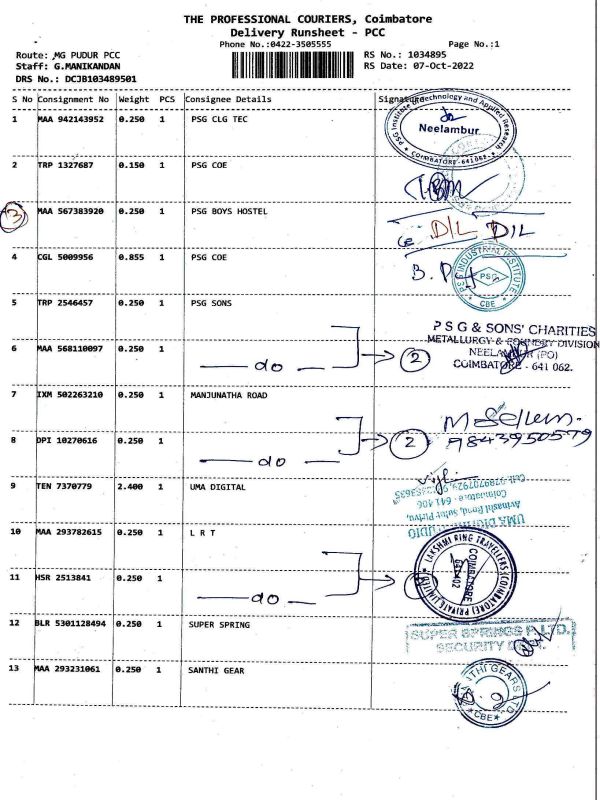 THE PROFESSIONAL COURIERS, Coimbatore
Delivery Runsheet - PCC
Phone No.:0422-3505555 Page No.:1
Route: MG PUDUR PCC RS No.: 1034895
Staff: G.MANIKANDAN RS Date: 07-Oct-2022
DRS No.: DCJB103489501
S No Consignment No Weight PCS Consignee Details Signature
1 MAA 942143952 0.250 1 PSG CLG TEC
PSG Institute of Technology and Applied Research
Neelambur
COIMBATORE-641062.
2 TRP 1327687 0.150 1 PSG COE
3 MAA 567383920 0.250 1 PSG BOYS HOSTEL
D/L D/L
4 CGL 5009956 0.855 1 PSG COE
PSG INDUSTRIAL INSTITUTE
PSG
CBE
5 TRP 2546457 0.250 1 PSG SONS
P S G & SONS' CHARITIES
METALLURGY & FOUNDRY DIVISION
NEELAMBUR (PO)
COIMBATORE - 641 062.
6 MAA 568110097 0.250 1 do 2
7 IXM 502263210 0.250 1 MANJUNATHA ROAD
8 DPI 10270616 0.250 1 do 2
9843950579
9 TEN 7370779 2.400 1 UMA DIGITAL
UMA DIGITAL STUDIO
Avinashi Road, Sulur Pirivu,
Coimbatore - 641 406
10 MAA 293782615 0.250 1 L R T
LAKSHMI RING TRAVELLERS (COIMBATORE) PRIVATE LIMITED
COIMBATORE
11 HSR 2513841 0.250 1 do
12 BLR 5301128494 0.250 1 SUPER SPRING
SUPER SPRINGS P LTD.
SECURITY
13 MAA 293231061 0.250 1 SANTHI GEAR
SANTHI GEARS LTD
CBE